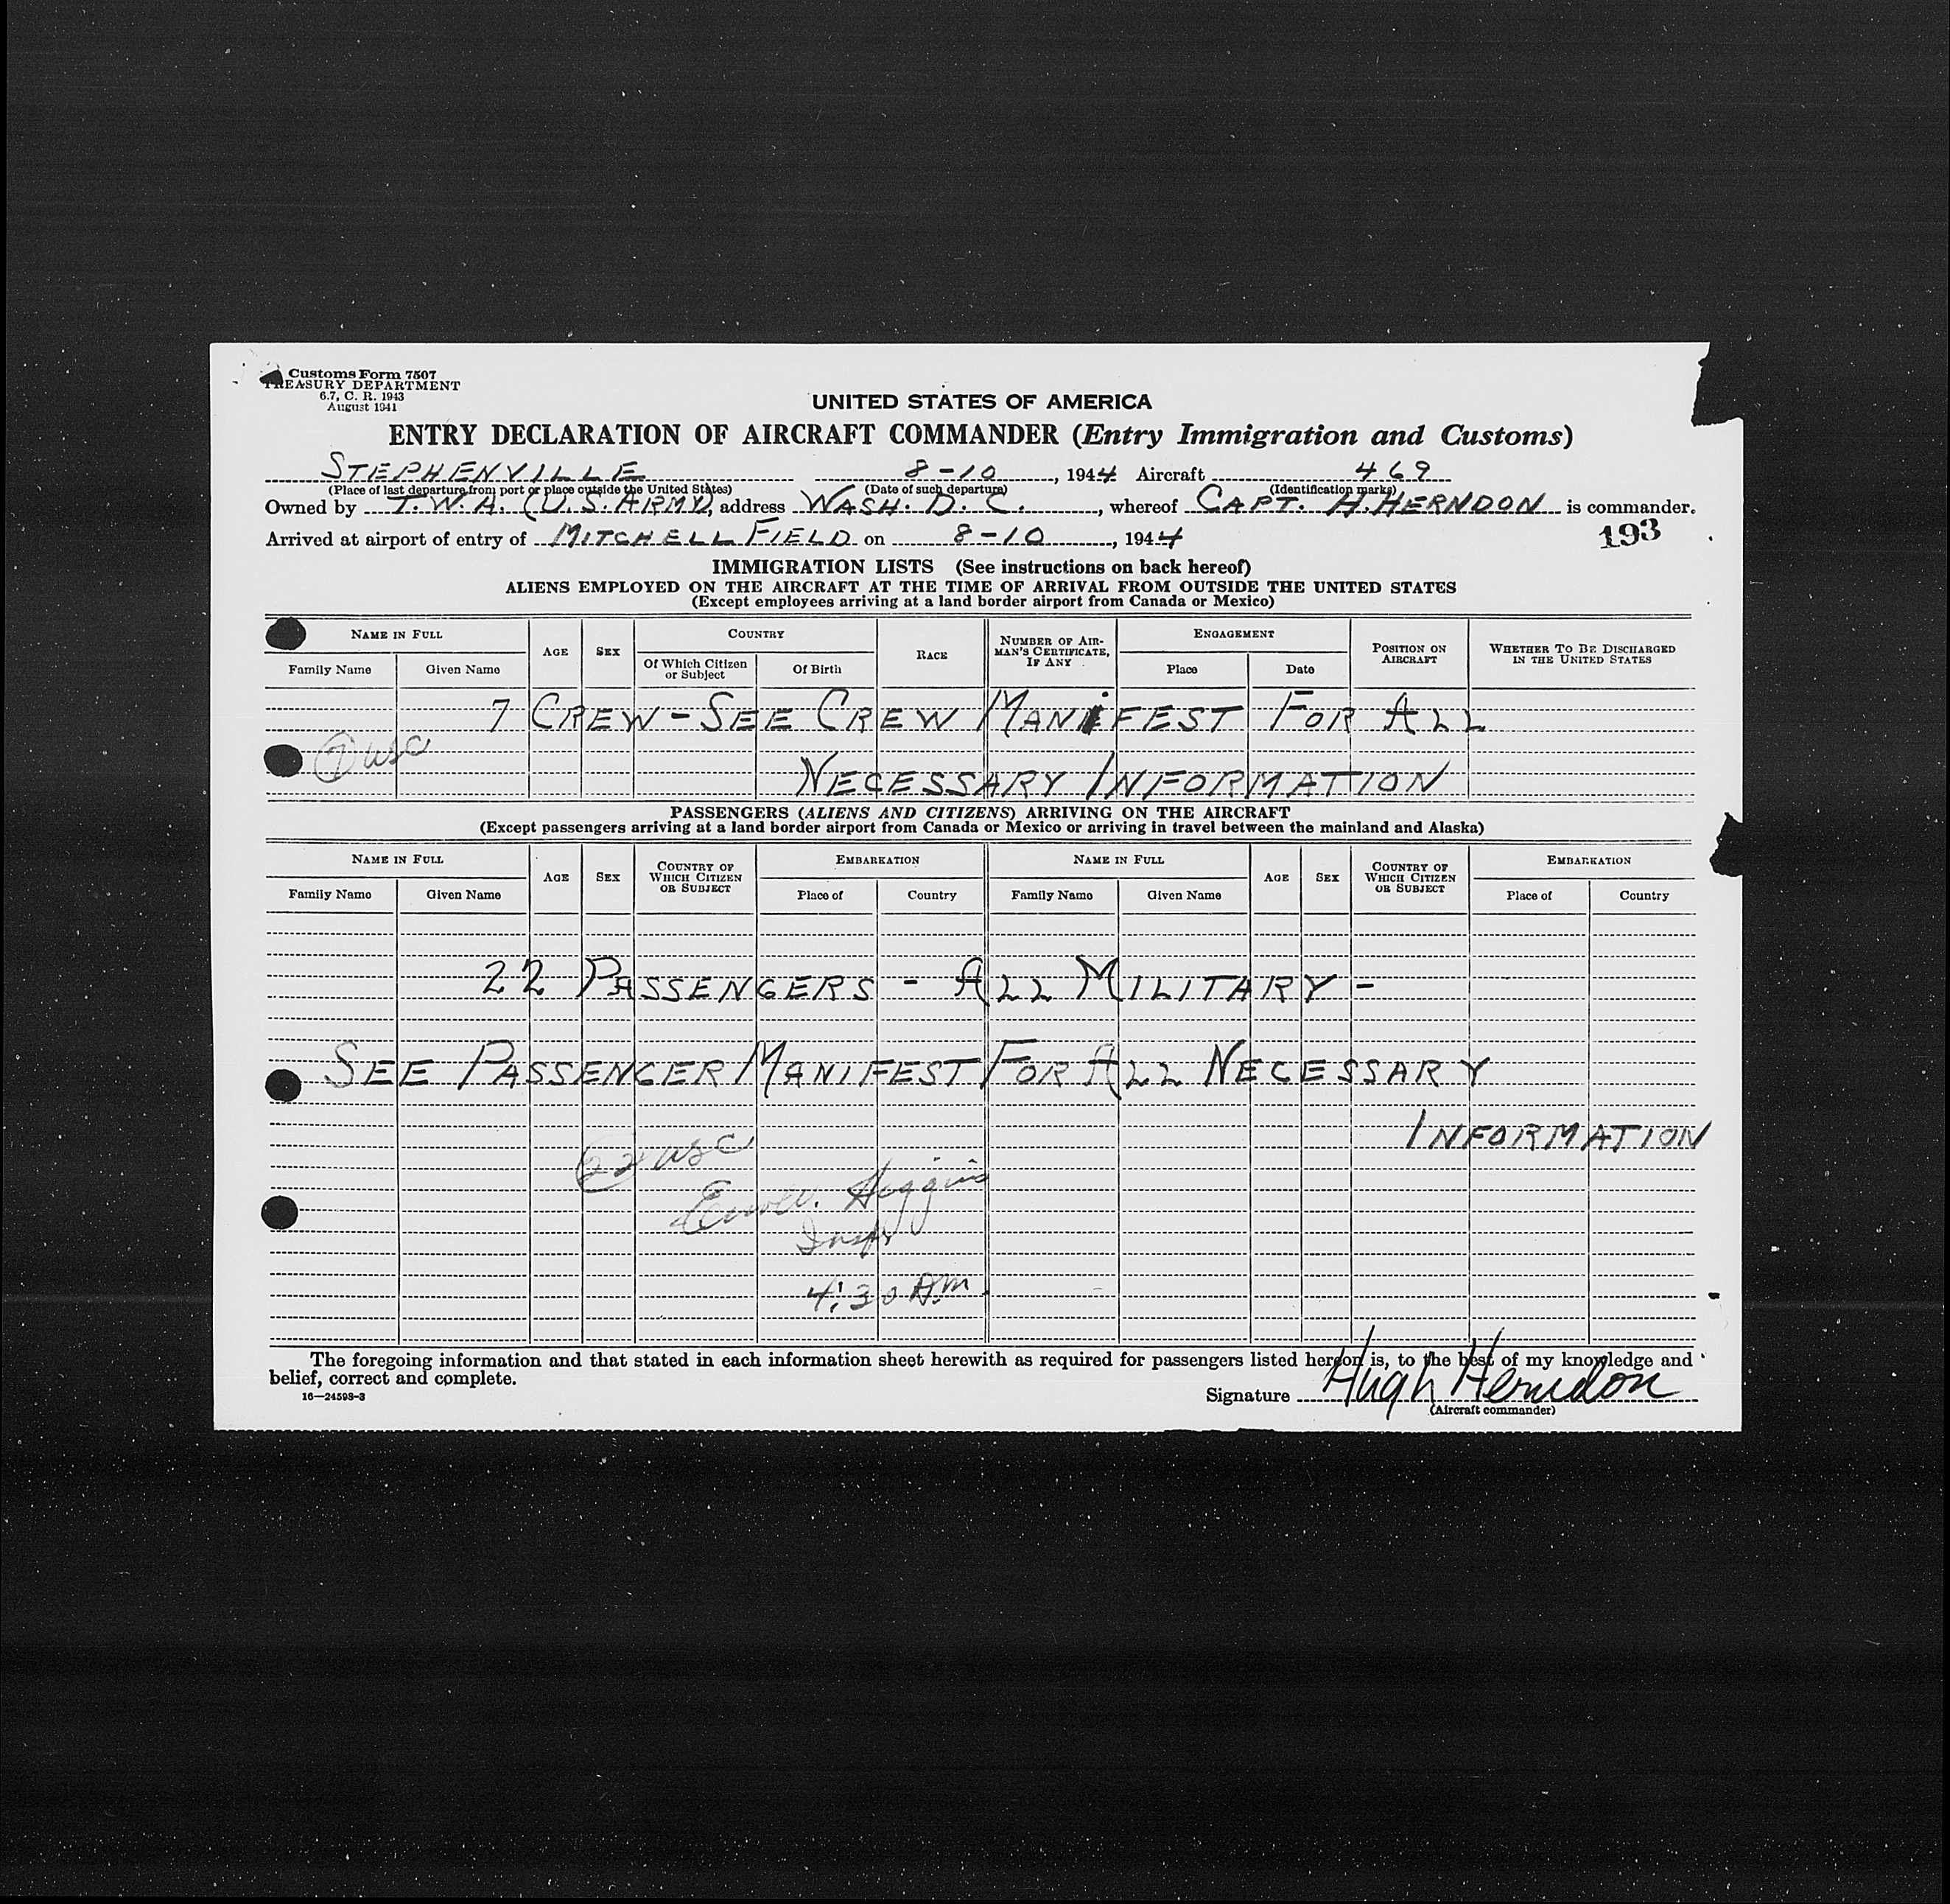 Customs Form 7507
TREASURY DEPARTMENT
6.7, C. R. 1943
August 1941
UNITED STATES OF AMERICA
ENTRY DECLARATION OF AIRCRAFT COMMANDER (Entry Immigration and Customs)
STEPHENVILLE 8-10, 1944 Aircraft 469
(Place of last departure from port or place outside the United States) (Date of such departure) (Identification marks)
Owned by T.W.A. (U.S. ARMY), address WASH. D. C., whereof CAPT. H. HERNDON is commander.
Arrived at airport of entry of MITCHELL FIELD on 8-10, 1944
193
IMMIGRATION LISTS (See instructions on back hereof)
ALIENS EMPLOYED ON THE AIRCRAFT AT THE TIME OF ARRIVAL FROM OUTSIDE THE UNITED STATES
(Except employees arriving at a land border airport from Canada or Mexico)
NAME IN FULL AGE SEX COUNTRY RACE NUMBER OF AIRMAN'S CERTIFICATE, IF ANY ENGAGEMENT POSITION ON AIRCRAFT WHETHER TO BE DISCHARGED IN THE UNITED STATES
Family Name Given Name Of Which Citizen or Subject Of Birth Place Date
7 CREW - SEE CREW MANIFEST FOR ALL
7 USC
NECESSARY INFORMATION
PASSENGERS (ALIENS AND CITIZENS) ARRIVING ON THE AIRCRAFT
(Except passengers arriving at a land border airport from Canada or Mexico or arriving in travel between the mainland and Alaska)
NAME IN FULL AGE SEX COUNTRY OF WHICH CITIZEN OR SUBJECT EMBARKATION NAME IN FULL AGE SEX COUNTRY OF WHICH CITIZEN OR SUBJECT EMBARKATION
Family Name Given Name Place of Country Family Name Given Name Place of Country
22 PASSENGERS - ALL MILITARY -
SEE PASSENGER MANIFEST FOR ALL NECESSARY
INFORMATION
22 USC
Higgins
Insp
4:30 A.M.
The foregoing information and that stated in each information sheet herewith as required for passengers listed hereon is, to the best of my knowledge and
belief, correct and complete.
16—24598-3
Signature Hugh Herndon
(Aircraft commander)